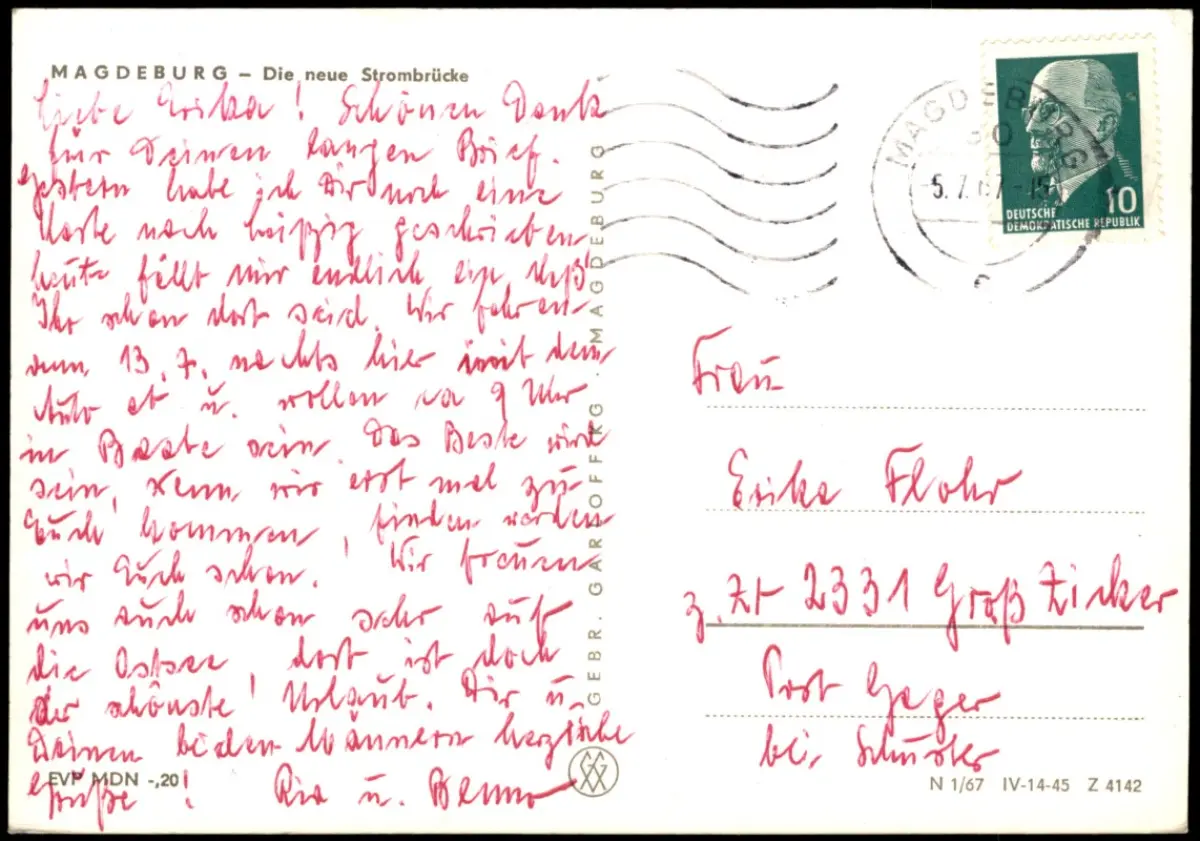 MAGDEBURG – Die neue Strombrücke
Liebe Erika! Schönen Dank
für Deinen langen Brief.
Gestern habe ich Dir noch eine
Karte nach Leipzig geschrieben
heute fällt mir endlich ein daß
Ihr schon dort seid. Wir fahren
am 13.7. nachts hier mit dem
Auto ab u. wollen ca 9 Uhr
in Baabe sein. Das Beste wird
sein, wenn wir erst mal zu
Euch kommen, finden werden
wir Euch schon. Wir freuen
uns auch schon sehr auf
die Ostsee, dort ist doch
der schönste Urlaub. Dir u.
Deinen beiden Männern herzliche
Grüße! Ria u. Benno
EVP MDN -,20
GEBR. GARLOFF KG. MAGDEBURG
MAGDEBURG
-5.7.67-15
10
DEUTSCHE
DEMOKRATISCHE REPUBLIK
Frau
Erika Flohr
z. Zt 2331 Groß Zicker
Post Gager
bei Schuster
N 1/67 IV-14-45 Z 4142